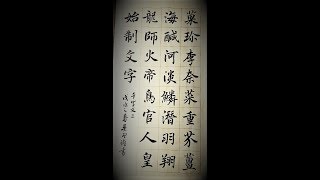 菓珍李奈菜重芥薑
海醎河淡鱗潛羽翔
龍師火帝鳥官人皇
始制文字
千字文三